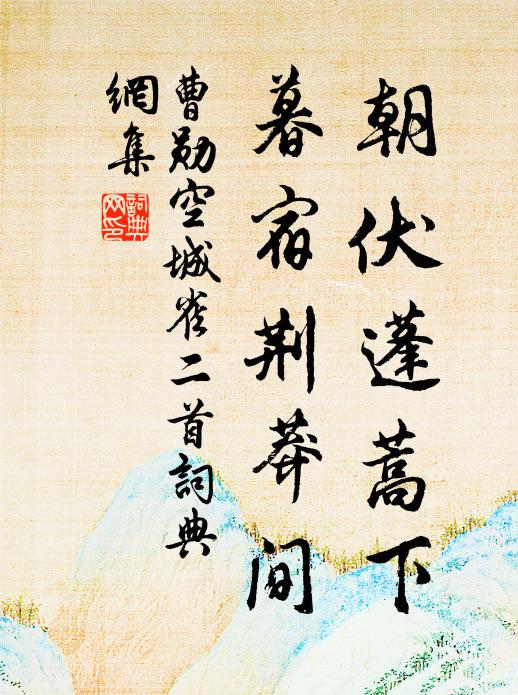 朝伏蓬蒿下
暮宿荆莽間
曹勛空城雀二首詞典
網集
詞典
网印